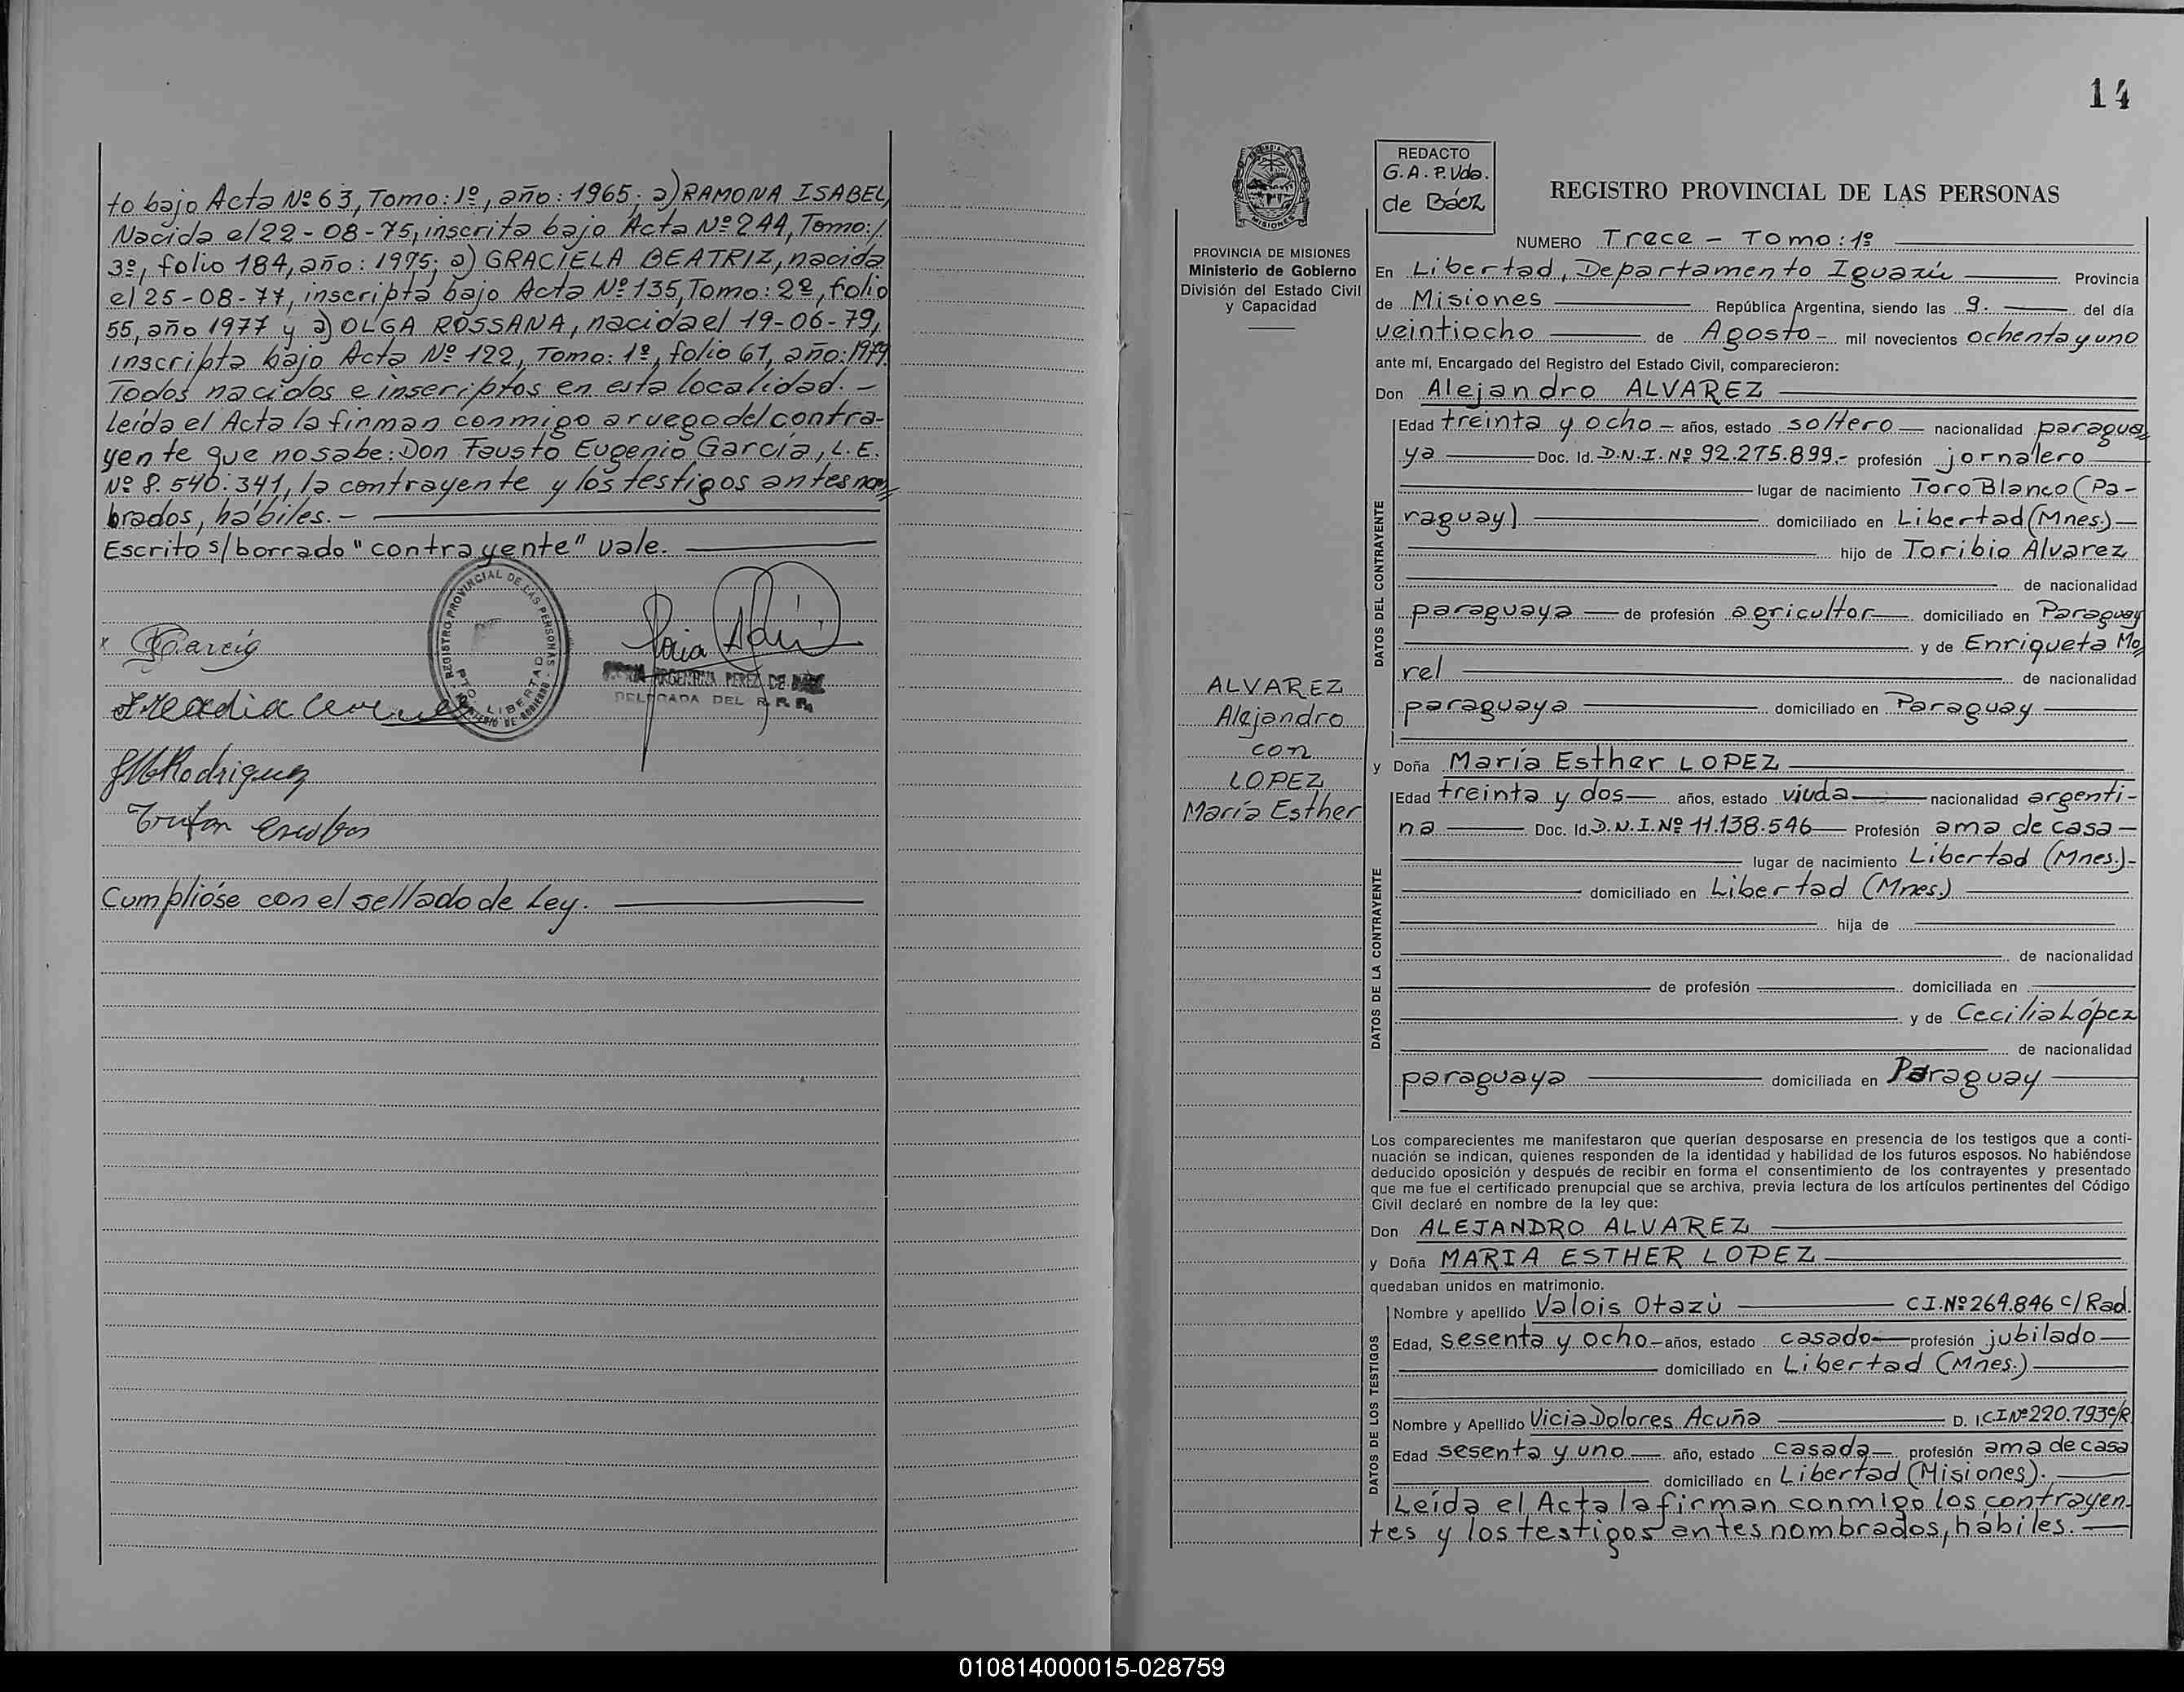 to bajo Acta Nº 63, Tomo: 1º, año: 1965; a) RAMONA ISABEL,
Nacida el 22-08-75, inscrita bajo Acta Nº 244, Tomo:/
3º, folio 184, año: 1975; a) GRACIELA BEATRIZ, nacida
el 25-08-77, inscripta bajo Acta Nº 135, Tomo: 2º, folio
55, año 1977 y a) OLGA ROSSANA, nacida el 19-06-79,
inscripta bajo Acta Nº 122, Tomo: 1º, folio 61, año: 1979.
Todos nacidos e inscriptos en esta localidad. -
Leída el Acta la firman conmigo a ruego del contra-
yente que no sabe: Don Fausto Eugenio García, L.E.
Nº 8.540.341, la contrayente y los testigos antes nom
brados, hábiles. -
Escrito s/borrado "contrayente" vale.
REGISTRO PROVINCIAL DE LAS PERSONAS
PTO. LIBERTAD
MINISTERIO DE GOBIERNO
García
ARGENTINA PEREZ DE BAEZ
DELEGADA DEL R. P. P.
Rodriguez
Cumplióse con el sellado de Ley.
14
PROVINCIA DE MISIONES
Ministerio de Gobierno
División del Estado Civil
y Capacidad
ALVAREZ
Alejandro
con
LOPEZ
María Esther
REDACTO
G.A.P. Vda.
de Báez
REGISTRO PROVINCIAL DE LAS PERSONAS
NUMERO Trece - Tomo: 1º
En Libertad, Departamento Iguazú Provincia
de Misiones República Argentina, siendo las 9. del día
veintiocho de Agosto - mil novecientos ochenta y uno
ante mí, Encargado del Registro del Estado Civil, comparecieron:
Don Alejandro ALVAREZ
DATOS DEL CONTRAYENTE
Edad treinta y ocho - años, estado soltero nacionalidad paragua
ya Doc. Id. D.N.I. Nº 92.275.899.- profesión jornalero
lugar de nacimiento Toro Blanco (Pa-
raguay) domiciliado en Libertad (Mnes.)
hijo de Toribio Alvarez
de nacionalidad
paraguaya de profesión agricultor domiciliado en Paraguay
y de Enriqueta Mo
rel de nacionalidad
paraguaya domiciliado en Paraguay
y Doña María Esther LOPEZ
DATOS DE LA CONTRAYENTE
Edad treinta y dos años, estado viuda nacionalidad argenti-
na Doc. Id. D.N.I. Nº 11.138.546 Profesión ama de casa
lugar de nacimiento Libertad (Mnes.)-
domiciliado en Libertad (Mnes.)
hija de
de nacionalidad
de profesión domiciliada en
y de Cecilia López
de nacionalidad
paraguaya domiciliada en Paraguay
Los comparecientes me manifestaron que querían desposarse en presencia de los testigos que a conti-
nuación se indican, quienes responden de la identidad y habilidad de los futuros esposos. No habiéndose
deducido oposición y después de recibir en forma el consentimiento de los contrayentes y presentado
que me fue el certificado prenupcial que se archiva, previa lectura de los artículos pertinentes del Código
Civil declaré en nombre de la ley que:
Don ALEJANDRO ALVAREZ
y Doña MARIA ESTHER LOPEZ
quedaban unidos en matrimonio.
DATOS DE LOS TESTIGOS
Nombre y apellido Valois Otazù C.I. Nº 264.846 C/Rad.
Edad, sesenta y ocho - años, estado casado profesión jubilado
domiciliado en Libertad (Mnes.)
Nombre y Apellido Vicia Dolores Acuña D. I C.I Nº 220.793 C/R
Edad sesenta y uno año, estado casada profesión ama de casa
domiciliado en Libertad (Misiones).
Leída el Acta la firman conmigo los contrayen-
tes y los testigos antes nombrados, hábiles.
010814000015-028759